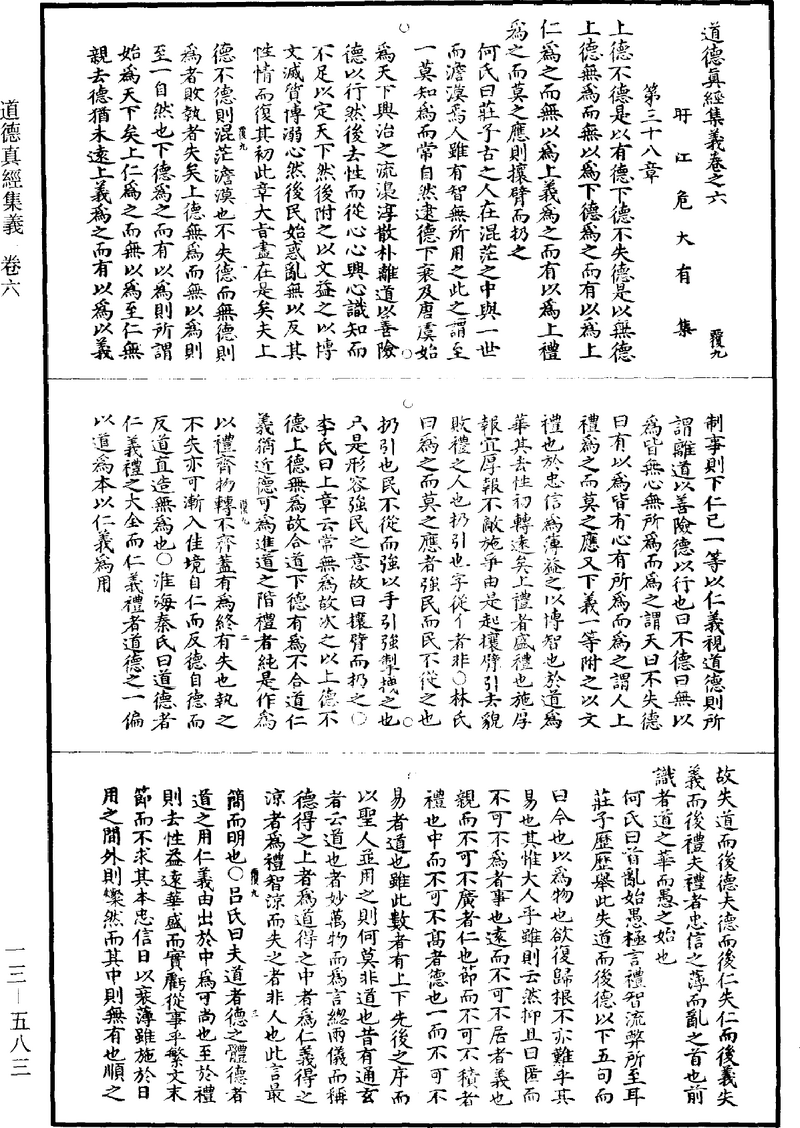 道德真經集義卷之六
覆九
盱江危大有集
第三十八章
上德不德是以有德下德不失德是以無德
上德無爲而無以爲下德爲之而有以爲上
仁爲之而無以爲上義爲之而有以爲上禮
爲之而莫之應則攘臂而扔之
何氏曰莊子古之人在混茫之中與一世
而澹漠焉人雖有智無所用之此之謂至
一莫知爲而常自然逮德下衰及唐虞始
爲天下興治之流澆淳散朴離道以善險
德以行然後去性而從心心與心識知而
不足以定天下然後附之以文益之以博
文滅質博溺心然後民始惑亂無以反其
性情而復其初此章大旨盡在是矣夫上
覆九
一
德不德則混茫澹漠也不失德而無德則
爲者敗執者失矣上德無爲而無以爲則
至一自然也下德爲之而有以爲則所謂
始爲天下矣上仁爲之而無以爲至仁無
親去德猶未遠上義爲之而有以爲以義
制事則下仁已一等以仁義視道德則所
謂離道以善險德以行也曰不德曰無以
爲皆無心無所爲而爲之謂天曰不失德
曰有以爲皆有心有所爲而爲之謂人上
禮爲之而莫之應又下義一等附之以文
禮也於忠信爲薄益之以博智也於道爲
華其去性初轉遠矣上禮者盛禮也施厚
報宜厚報不敵施爭由是起攘臂引去貌
敗禮之人也扔引也字從亻者非○林氏
曰爲之而莫之應者強民而民不從之也
扔引也民不從而強以手引強掣拽之也
只是形容強民之意故曰攘臂而扔之○
李氏曰上章云常無爲故次之以上德不
德上德無爲故合道下德有爲不合道仁
義猶近德可爲進道之階禮者純是作爲
覆九
二
以禮齊物轉不齊蓋有爲終有失也執之
不失亦可漸入佳境自仁而反德自德而
反道直造無爲也○淮海秦氏曰道德者
仁義禮之大全而仁義禮者道德之一偏
以道爲本以仁義爲用
故失道而後德失德而後仁失仁而後義失
義而後禮夫禮者忠信之薄而亂之首也前
識者道之華而愚之始也
何氏曰首亂始愚極言禮智流弊所至耳
莊子歷歷舉此失道而後德以下五句而
曰今也以爲物也欲復歸根不亦難乎其
易也其惟大人乎雖則云然抑且曰匿而
不可不爲者事也遠而不可不居者義也
親而不可不廣者仁也節而不可不積者
禮也中而不可不高者德也一而不可不
易者道也雖此數者有上下先後之序而
以聖人並用之則何莫非道也昔有通玄
者云道也者妙萬物而爲言總兩儀而稱
德得之上者爲道得之中者爲仁義得之
涼者爲禮智涼而失之者非人也此言最
覆九
三
簡而明也○呂氏曰夫道者德之體德者
道之用仁義由出於中爲可尚也至於禮
則去性益遠華盛而實虧從事乎繁文末
節而不求其本忠信日以衰薄雖施於日
用之間外則爍然而其中則無有也順之
道德真經集義 卷六
一三—五八三